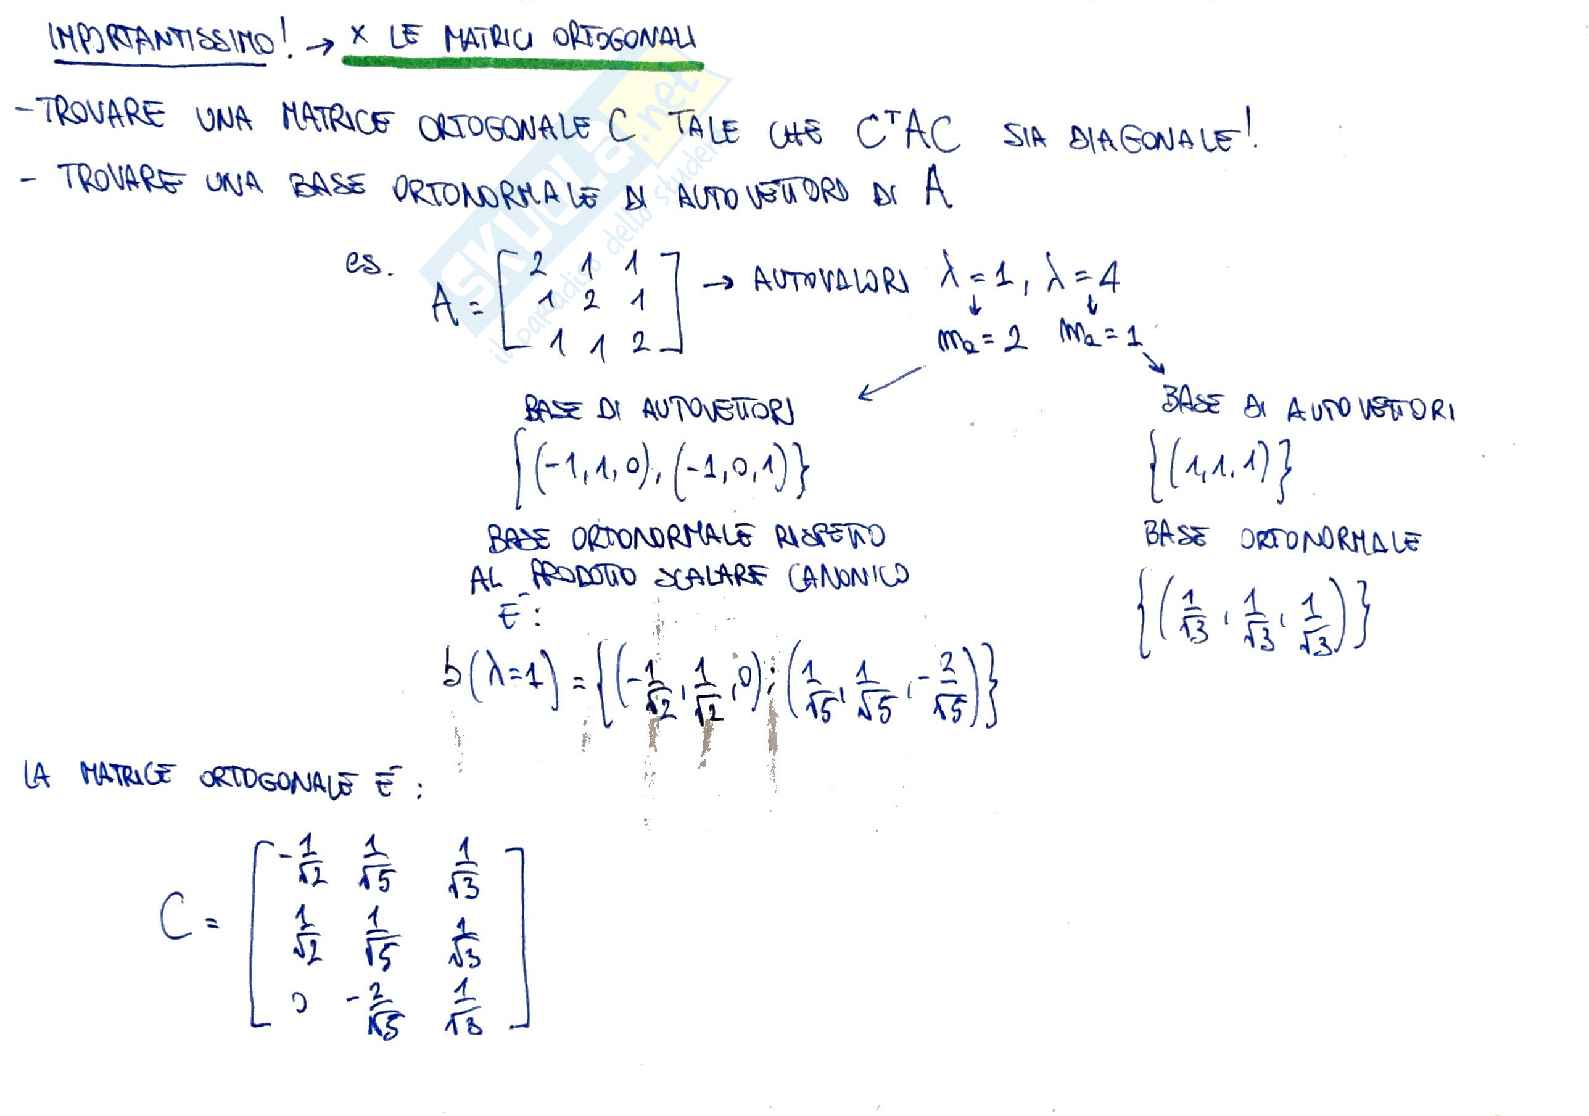 IMPORTANTISSIMO! → x LE MATRICI ORTOGONALI
- TROVARE UNA MATRICE ORTOGONALE C TALE CHE CᵀAC SIA DIAGONALE!
- TROVARE UNA BASE ORTONORMALE DI AUTOVETTORI DI A
es.
A = [2 1 1; 1 2 1; 1 1 2] → AUTOVALORI λ=1, λ=4
↓ ↓
ma=2 ma=1
BASE DI AUTOVETTORI
{(-1,1,0),(-1,0,1)}
BASE ORTONORMALE RISPETTO
AL PRODOTTO SCALARE CANONICO
E':
b(λ=1) = {(-1/√2, 1/√2, 0); (1/√5, 1/√5, -2/√5)}
BASE DI AUTOVETTORI
{(1,1,1)}
BASE ORTONORMALE
{(1/√3, 1/√3, 1/√3)}
LA MATRICE ORTOGONALE E':
C = [-1/√2 1/√5 1/√3; 1/√2 1/√5 1/√3; 0 -2/√5 1/√3]
SKUOLA.net
il paradiso dello studente